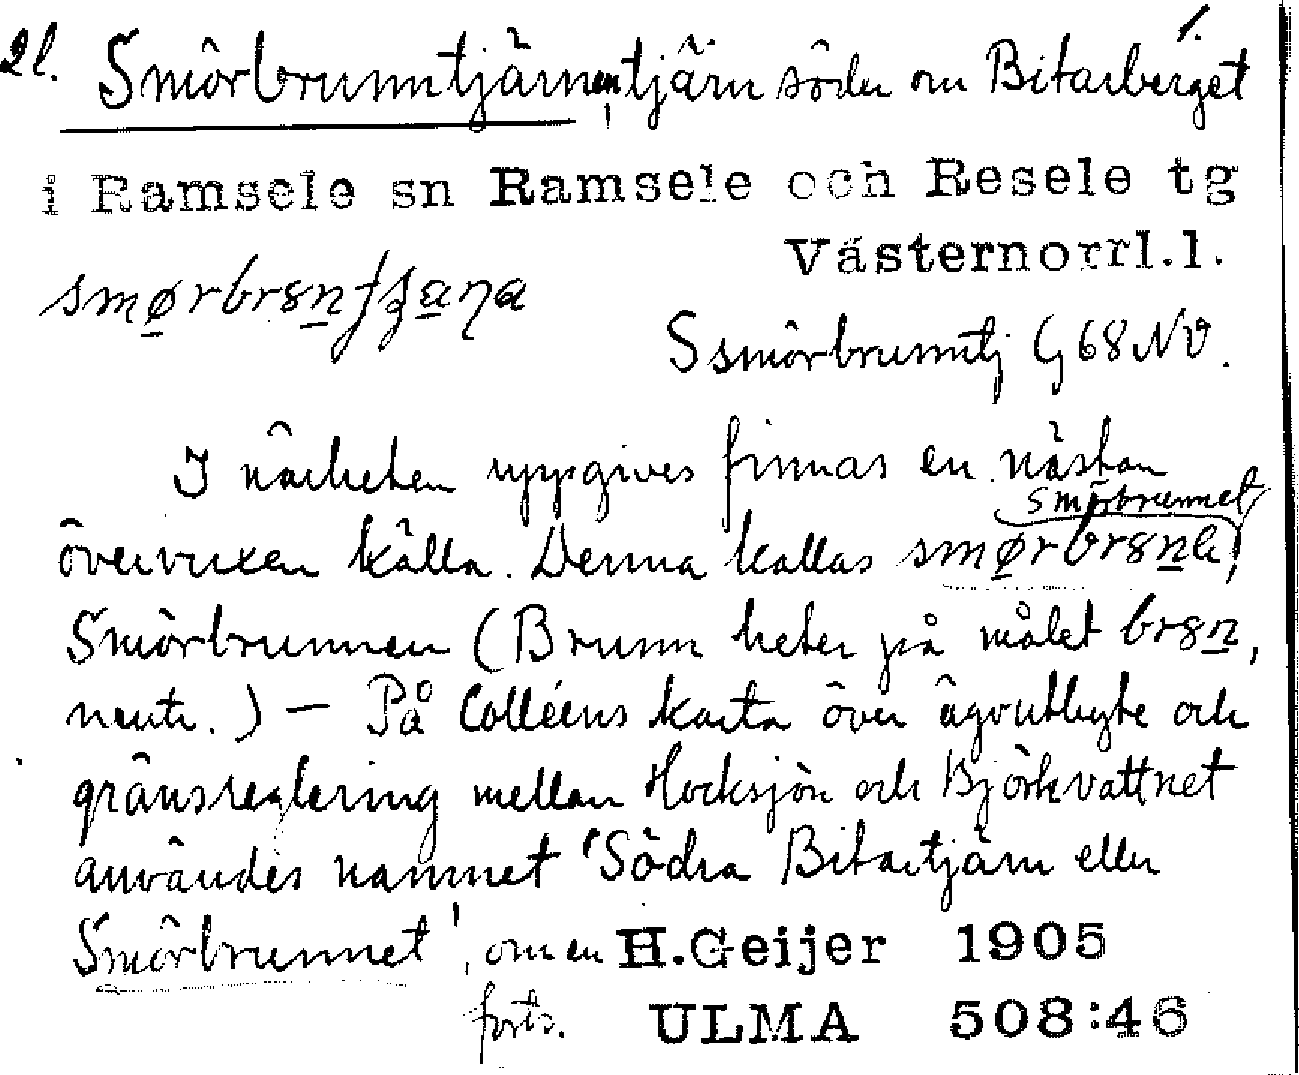 2l. Smörbrunntjärnen, tjärn söder om Bitarberget 1.
i Ramsele sn Ramsele och Resele tg
Västernorrl.l.
Ssmörbrunntj G 68 NV.
I närheten uppgives finnas en nästan
smörbrunnet
övervuxen källa. Denna kallas
Smörbrunnen (Brunn heter på målet
neutr.) — På Colléens karta över ägoutbyte och
gränsreglering mellan Hocksjön och Björkvattnet
användes namnet 'Södra Bitartjärn eller
Smörbrunnet', om en H.Geijer 1905
forts. ULMA 508:46